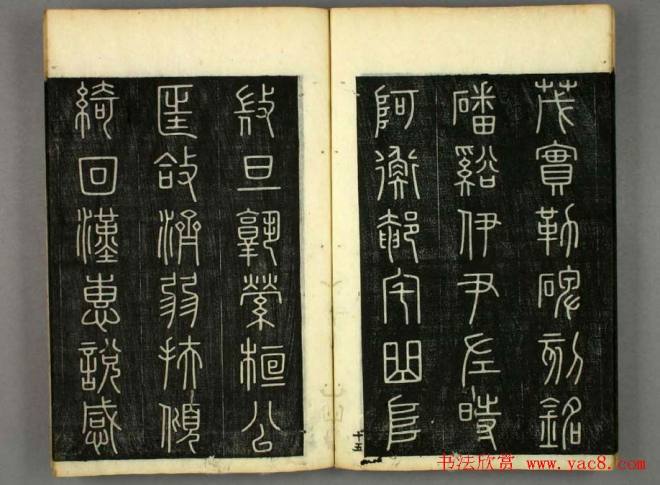 茂實勒碑刻銘
磻谿伊尹左時
阿衡奄宅曲阜
十五
𢼸旦孰營桓公
匡敆濟弱扶傾
綺回漢惠說感
书法欣赏 www.yac8.com